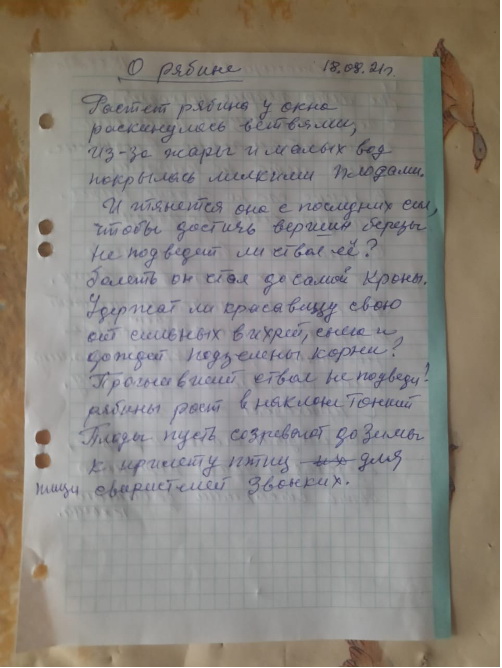 О рябине 18.08.21г.
Растет рябина у окна
раскинулась ветвями,
Из-за жары и малых вод
покрылась мелкими плодами.
И тянется она с последних сил,
чтобы достичь вершин березы
Не подведет ли ствол её?
болеть он стал до самой кроны.
Удержат ли красавицу свою
от сильных вихрей, снега и
дождей подземены корни?
ствол не подведи!
рябины рост в наклон тонкий
Плоды пусть созревают до зимы
к прилету птиц для
пищи свиристелей звонких.